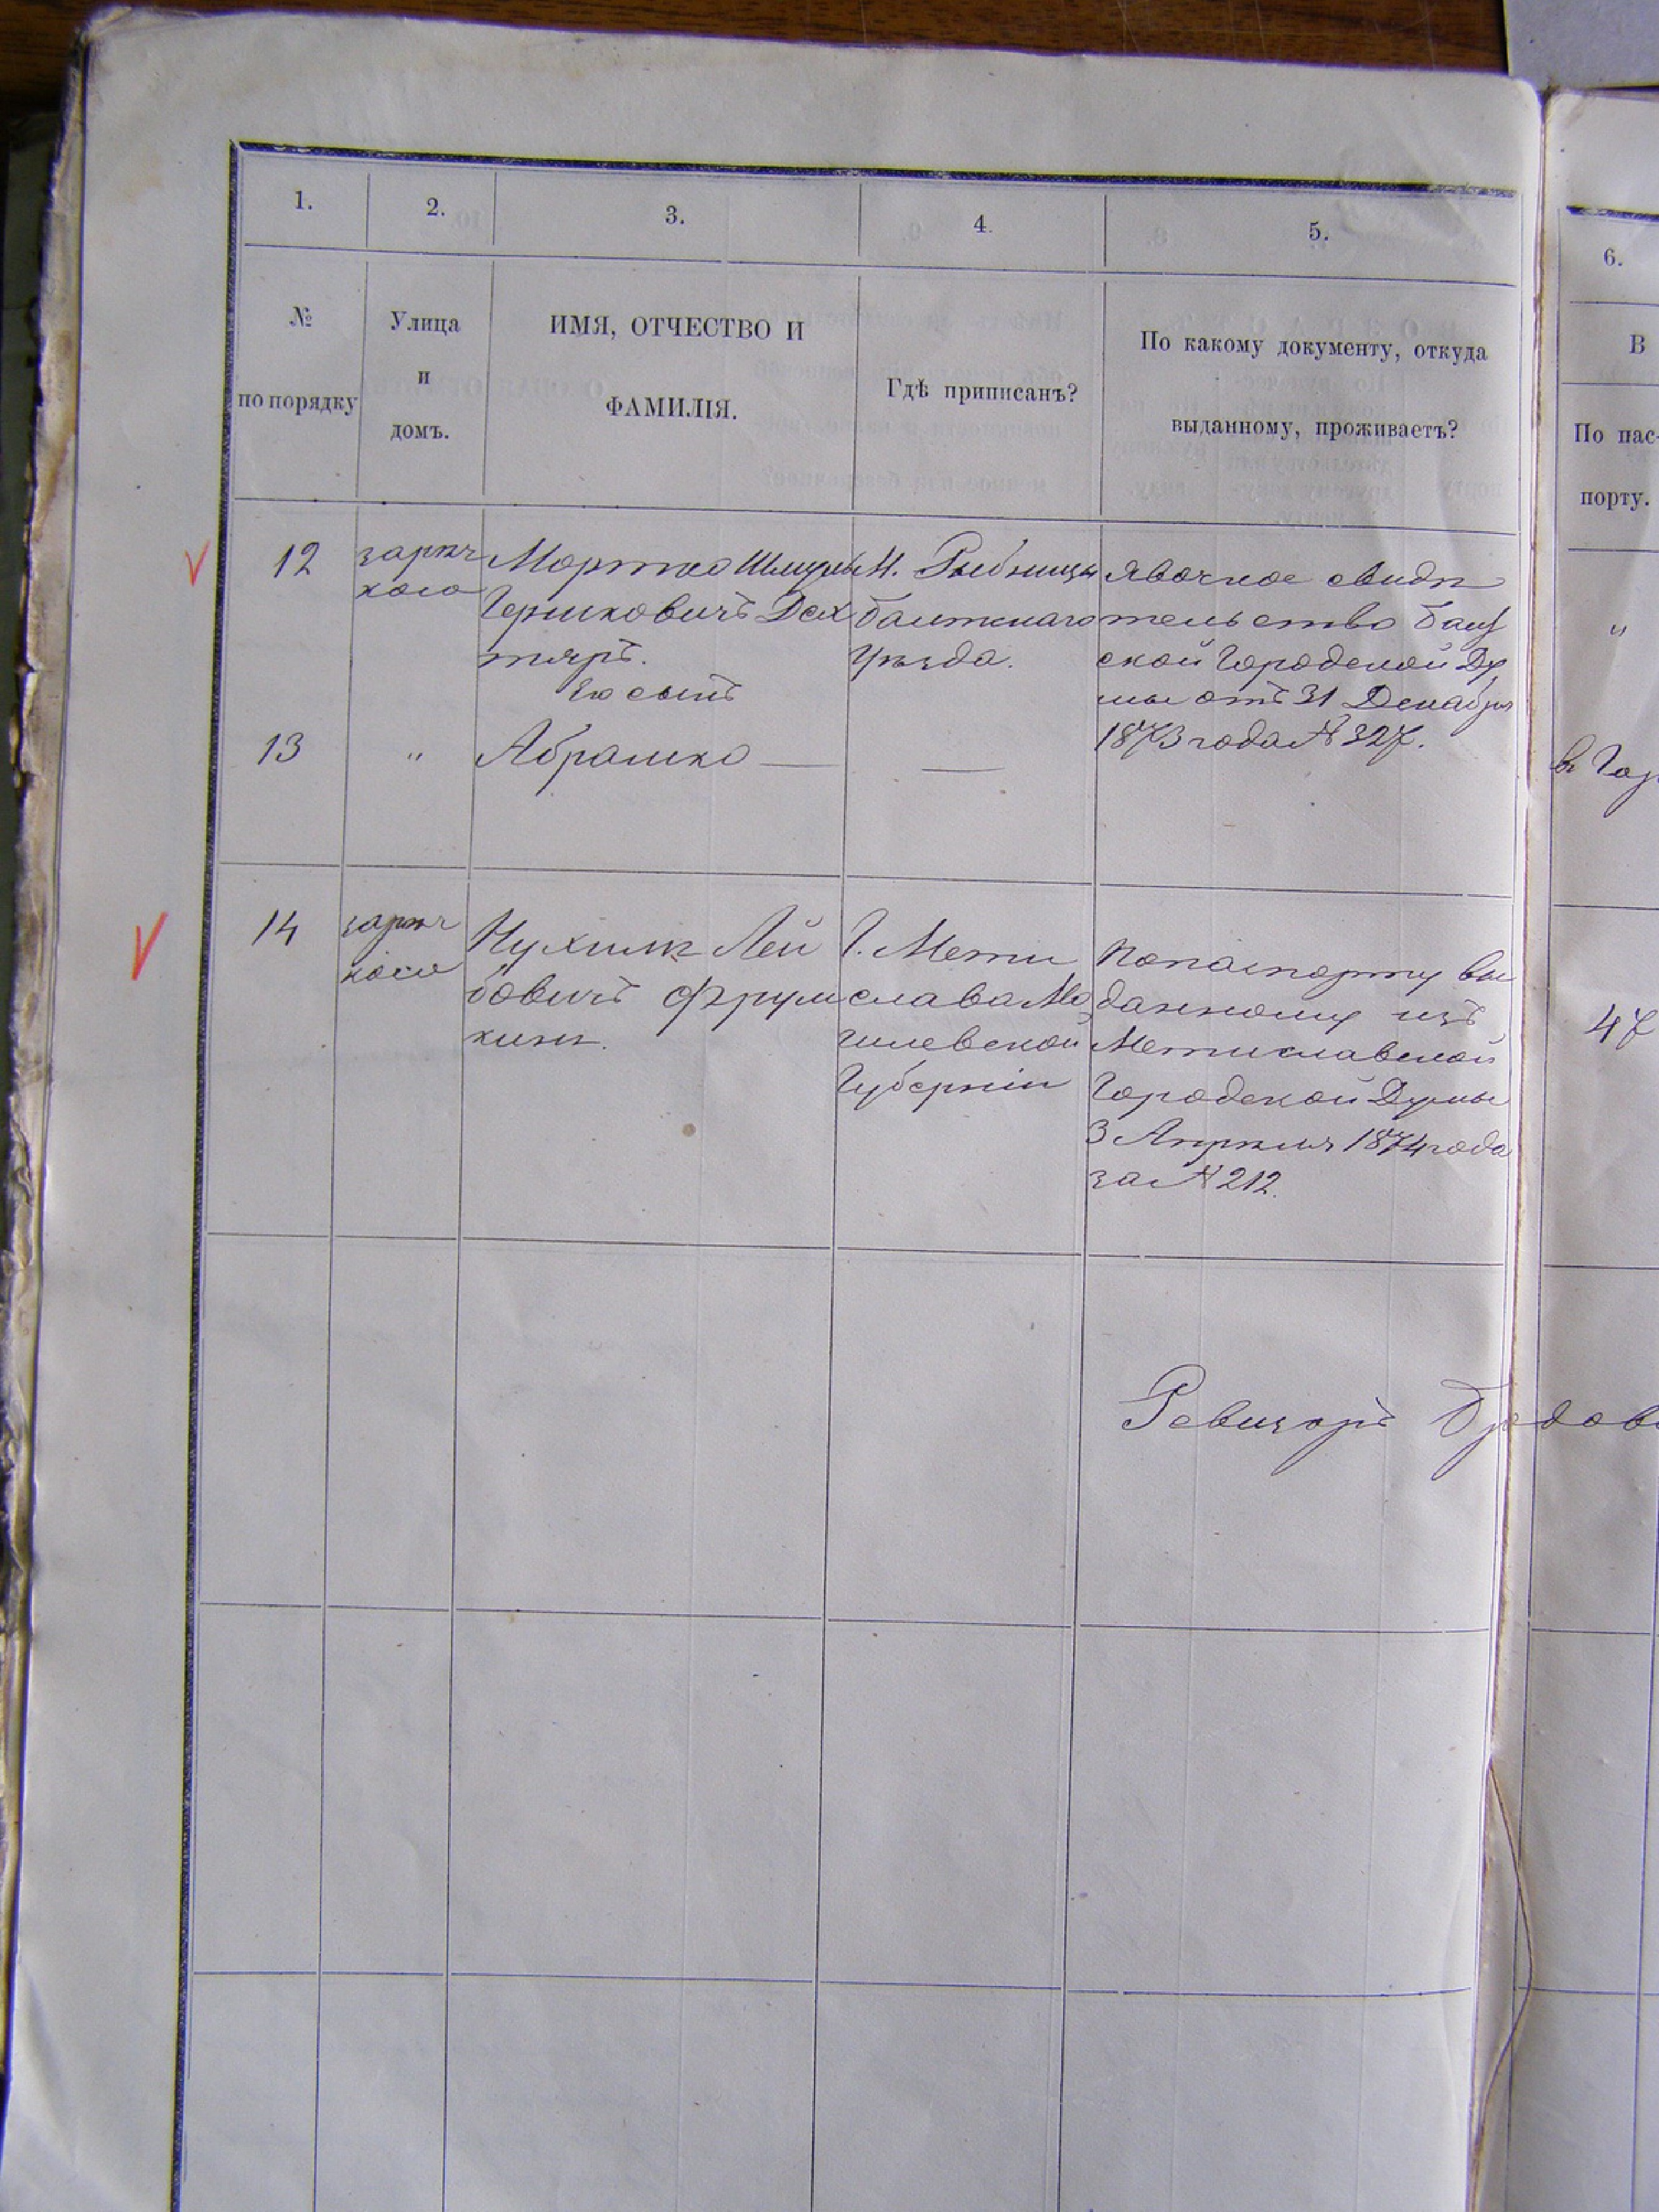 1.
2.
3.
4.
5.
6.
№
по порядку
Улица
и
домъ.
ИМЯ, ОТЧЕСТВО И
ФАМИЛІЯ.
Гдѣ приписанъ?
По какому документу, откуда
выданному, проживаетъ?
В
По пас-
порту.
12
зарѣч
кого
Мортко
Гершковичъ Дех
тяръ.
Его сынъ
М. Рыбницы
Балтскаго
Уѣзда.
Явочное свидѣ
тельство
ской Городской Ду
мы отъ 31 Декабря
1873 года № 327.
"
13
"
Абрамко —
—
въ Гор
14
зарѣч
кого
Нухимъ Лей
бовичъ Фрум
кинъ.
Г. Мсти
слава Мо
гилевской
Губерніи
По паспорту вы
данному изъ
Мстиславской
Городской Думы
3 Апрѣля 1874 года
за № 212.
47
Ревизоръ